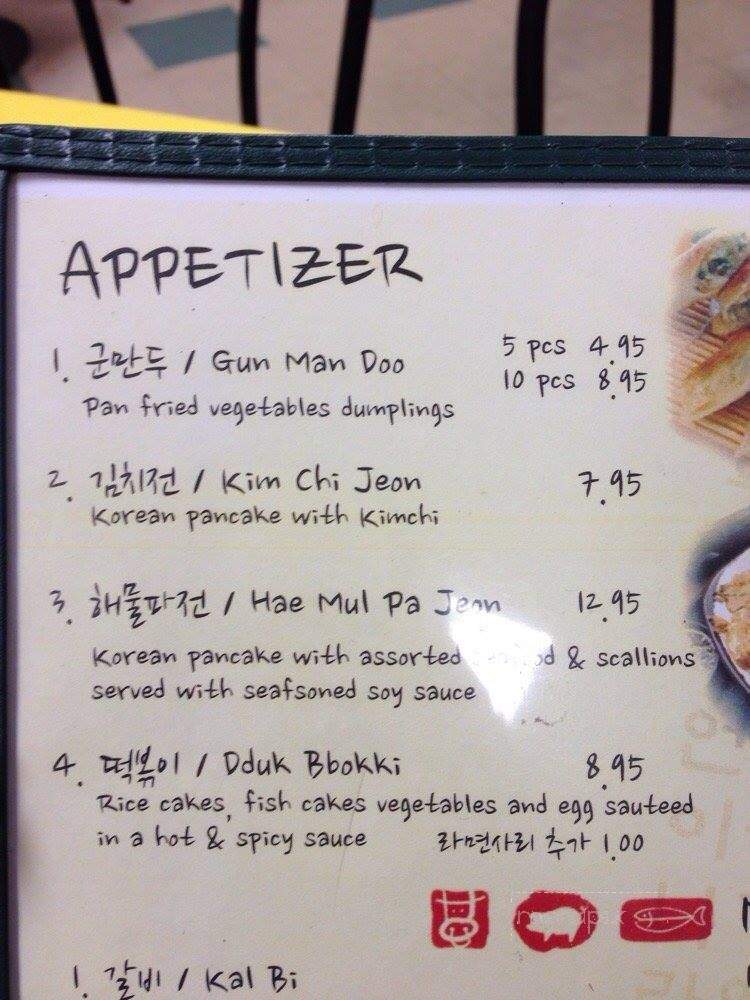 APPETIZER
1. 군만두 / Gun Man Doo 5 pcs 4.95
10 pcs 8.95
Pan fried vegetables dumplings
2. 김치전 / Kim Chi Jeon 7.95
Korean pancake with Kimchi
3. 해물파전 / Hae Mul Pa Jeon 12.95
Korean pancake with assorted & scallions
served with seafsoned soy sauce
4. 떡볶이 / Dduk Bbokki 8.95
Rice cakes, fish cakes vegetables and egg sauteed
in a hot & spicy sauce 라면사리 추가 1.00
1. 갈비 / Kal Bi